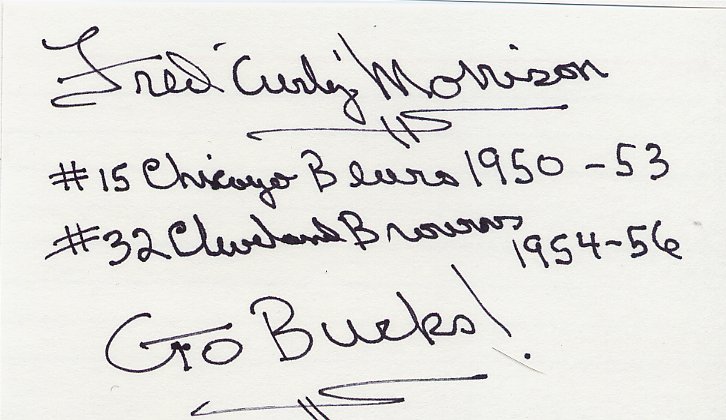 Fred "Curly" Morrison
#15 Chicago Bears 1950-53
#32 Cleveland Browns 1954-56
Go Bucks!